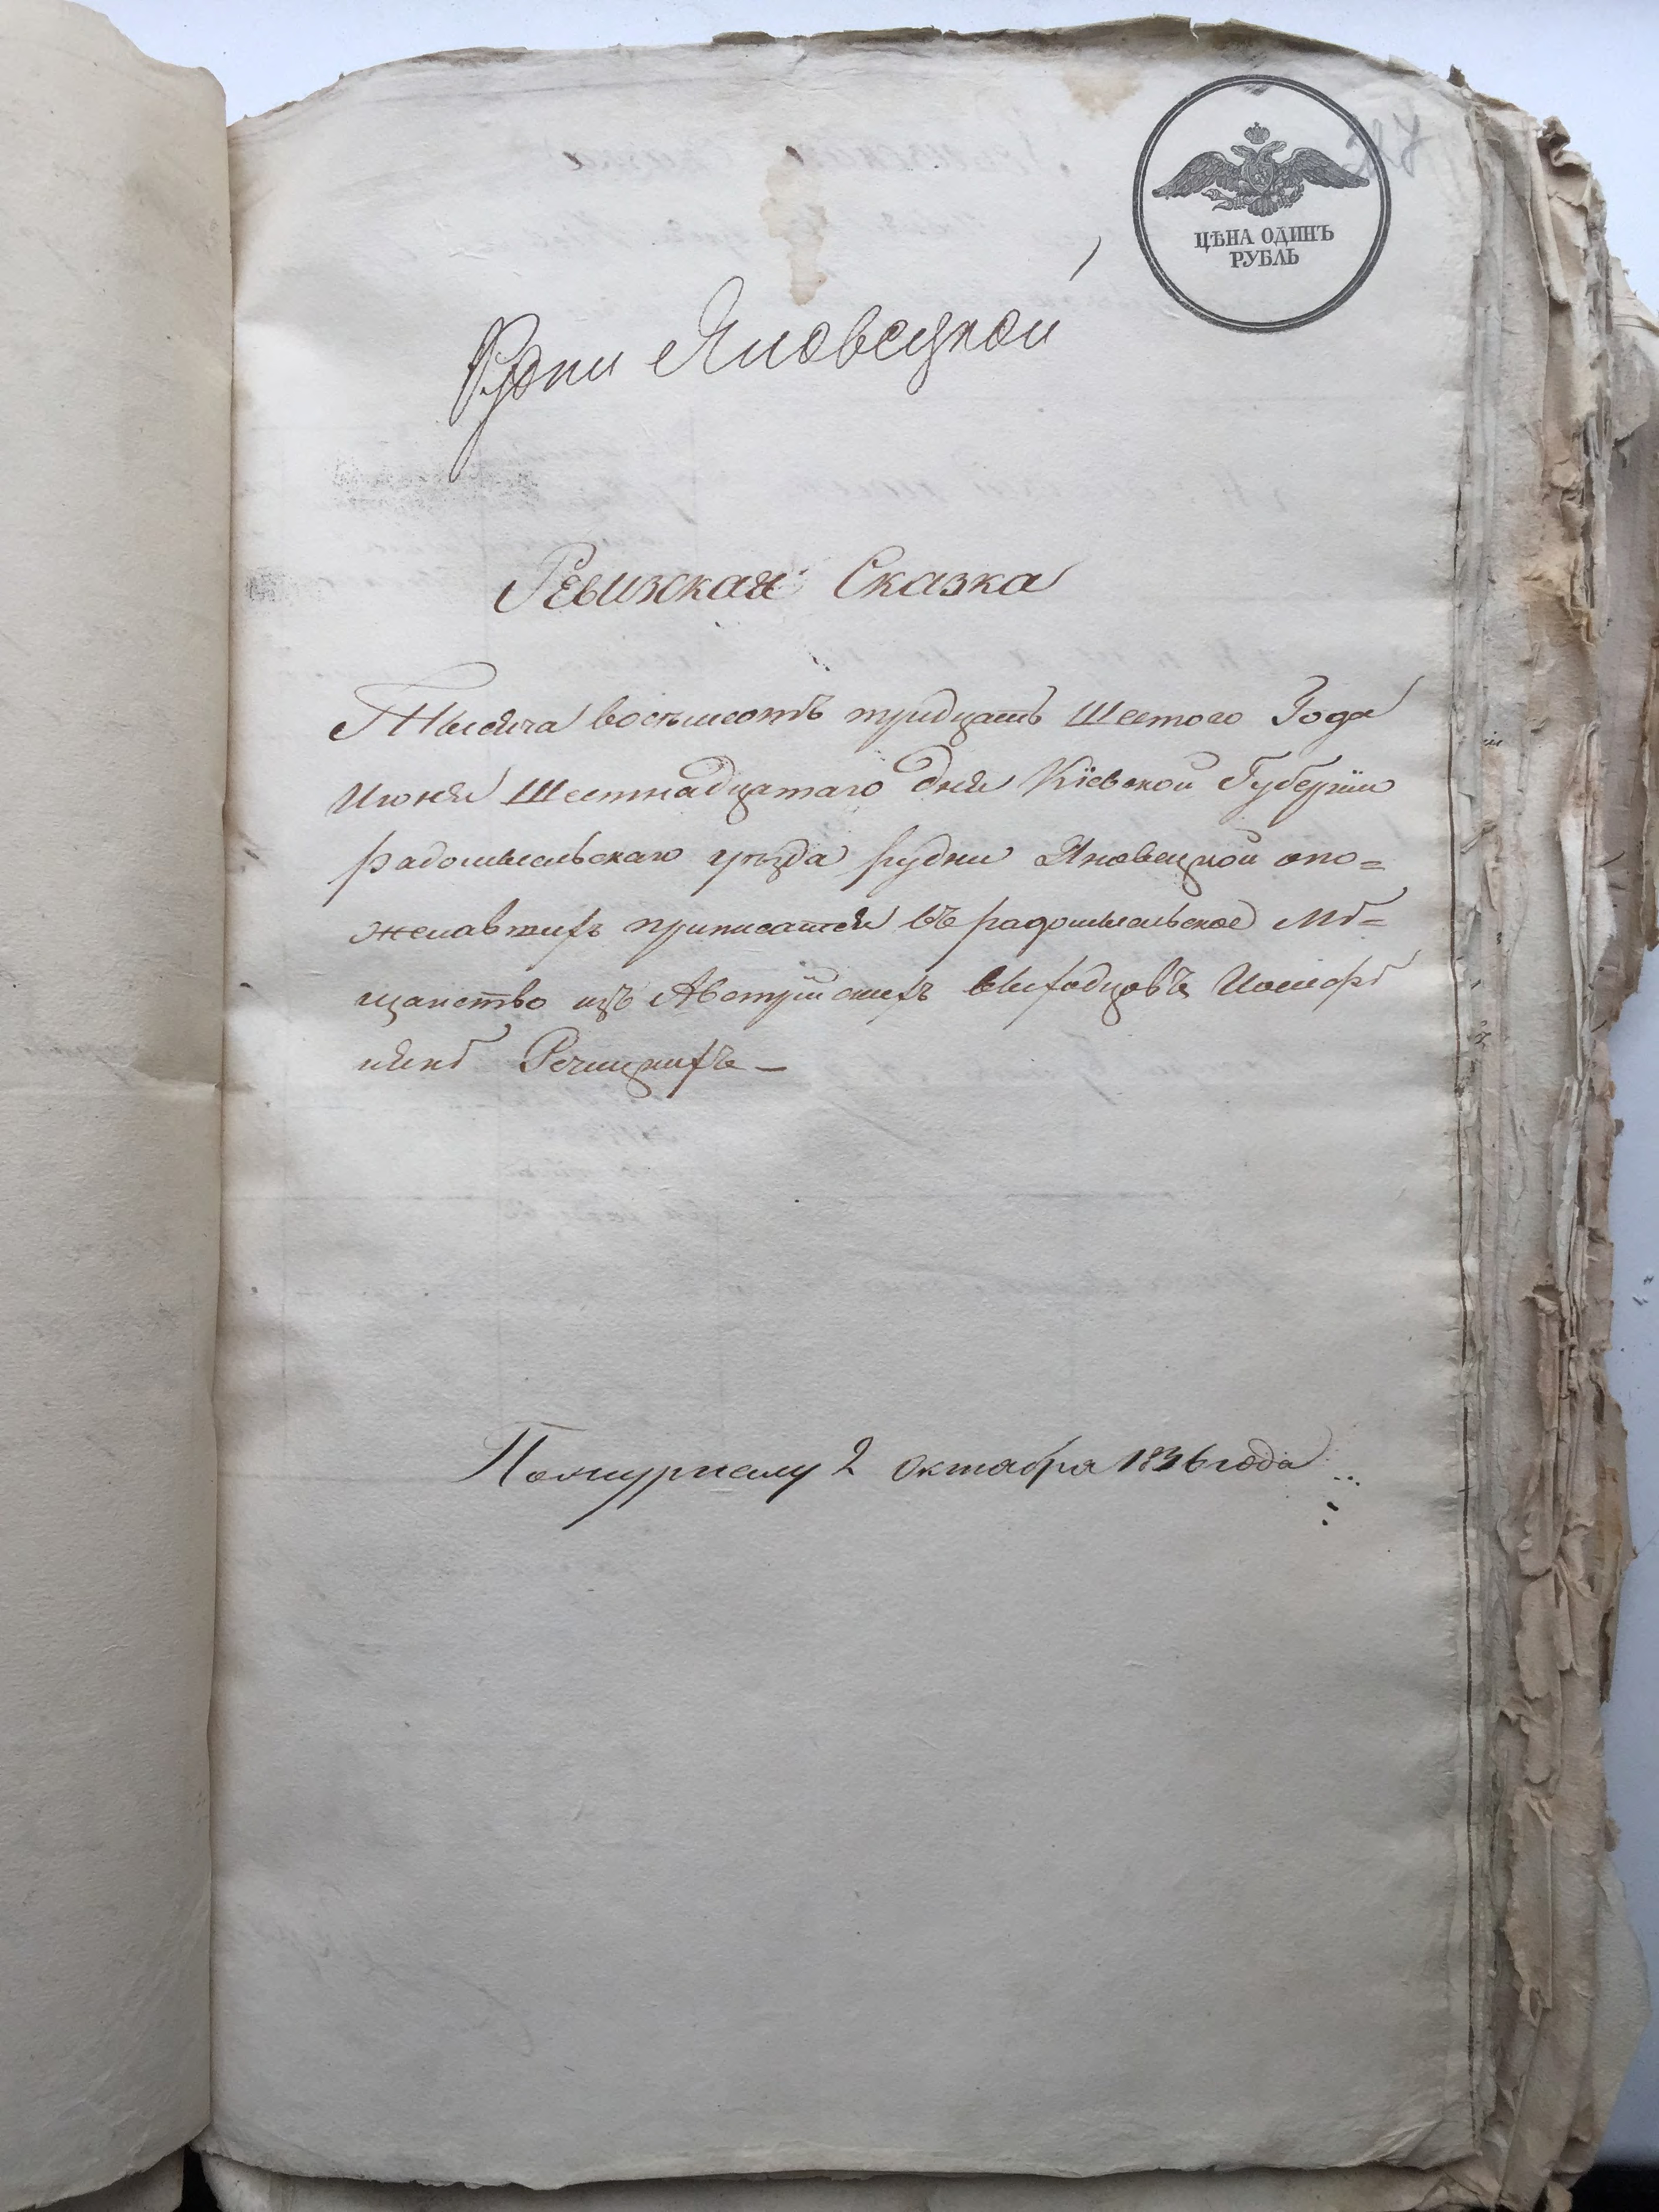 ЦѢНА ОДИНЪ
РУБЛЬ
Рудни Яновецкой
Ревизская Сказка
Тысяча восемьсотъ тридцать Шестого Года
Июня Шестнадцатаго дня Кіевской Губерніи
радомысльскаго уѣзда рудни Яновецкой о по=
желавшихъ приписатся въ радомысльское Мѣ=
щанство изъ Австрійскихъ выходцовъ
Речицкихъ —
2 октября 1836 года